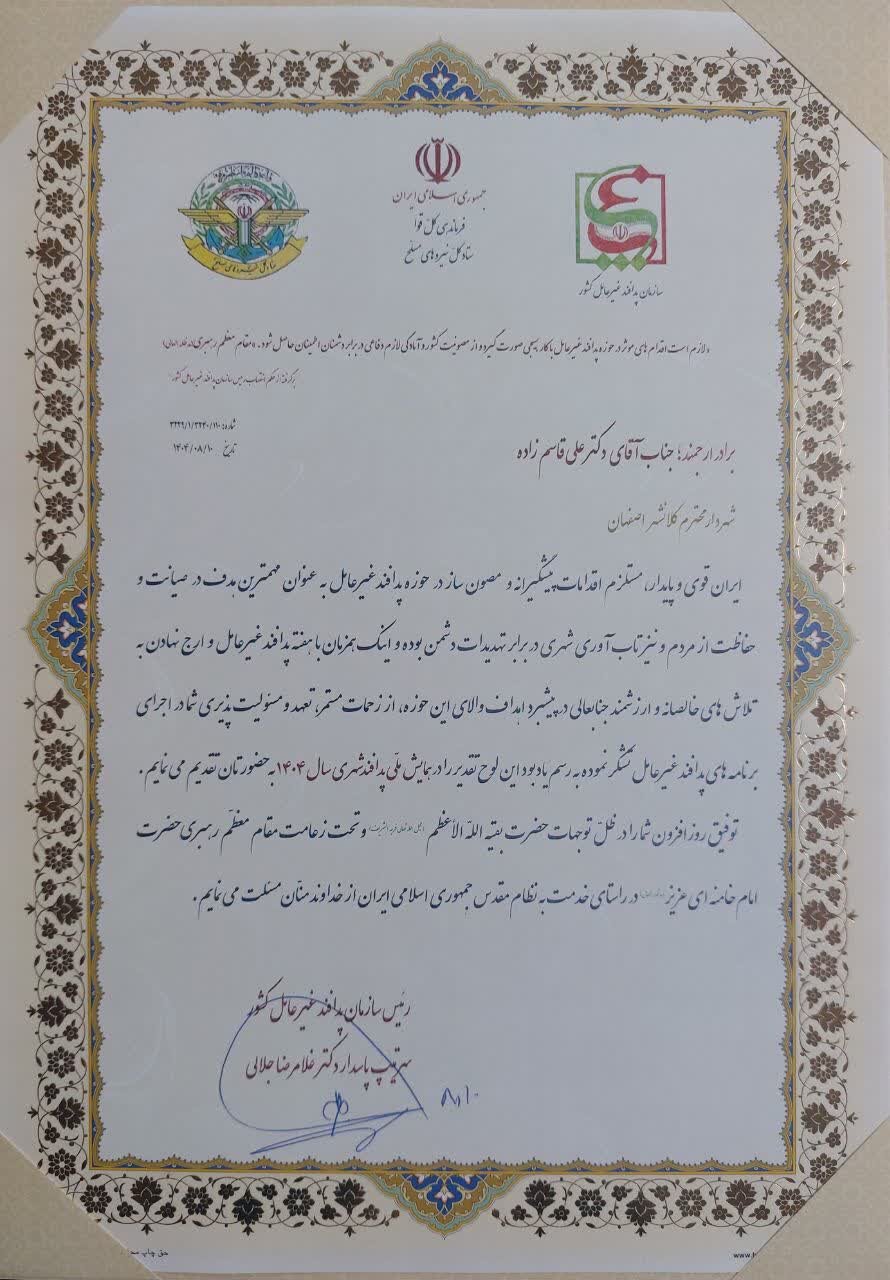 جمهوری اسلامی ایران
فرماندهی کل قوا
ستاد کل نیروهای مسلح
ستاد کل نیروهای مسلح
سازمان پدافند غیرعامل کشور
«لازم است اقدام های موثر در حوزه پدافند غیرعامل با کار بسیجی صورت گیرد و از مصونیت کشور و آمادگی لازم دفاعی در برابر دشمنان اطمینان حاصل شود.» مقام معظم رهبری (مد ظله العالی)
برگرفته از حکم انتصاب رییس سازمان پدافند غیرعامل کشور
شماره: ۳۲۲۹/۱/۳۲۴۰/۱۱۰
تاریخ ۱۴۰۴/۰۸/۱۰
برادر ارجمند؛ جناب آقای دکتر علی قاسم زاده
شهردار محترم کلانشهر اصفهان
ایران قوی و پایدار، مستلزم اقدامات پیشگیرانه و مصون ساز در حوزه پدافند غیرعامل به عنوان مهمترین هدف در صیانت و
حفاظت از مردم و نیز تاب آوری شهری در برابر تهدیدات دشمن بوده و اینک همزمان با هفته پدافند غیرعامل و ارج نهادن به
تلاش های خالصانه و ارزشمند جنابعالی در پیشبرد اهداف والای این حوزه، از زحمات مستمر، تعهد و مسئولیت پذیری شما در اجرای
برنامه های پدافند غیرعامل تشکر نموده به رسم یادبود این لوح تقدیر را در همایش ملّی پدافند شهری سال ۱۴۰۴ به حضورتان تقدیم می نمایم.
توفیق روز افزون شما را در ظلّ توجهات حضرت بقیه اللّه الأعظم (عجل الله تعالی فرجه الشریف) و تحت زعامت مقام معظّم رهبری حضرت
امام خامنه ای عزیز در راستای خدمت به نظام مقدس جمهوری اسلامی ایران از خداوند منّان مسئلت می نمایم.
رئیس سازمان پدافند غیرعامل کشور
سرتیپ پاسدار دکتر غلامرضا جلالی
حق چاپ
www.